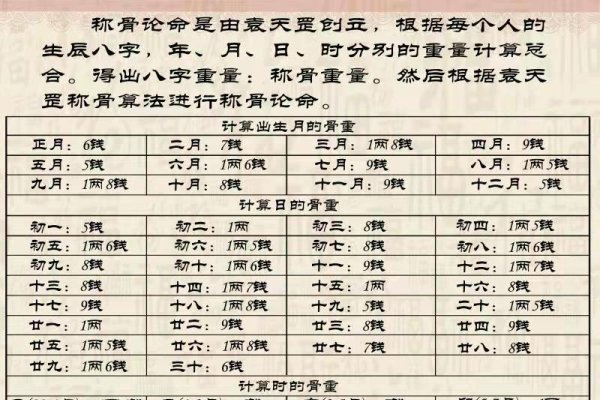 称骨论命是由袁天罡创立，根据每个人的
生辰八字，年、月、日、时分别的重量计算总
合。得出八字重量：称骨重量。然后根据袁天
罡称骨算法进行称骨论命。
计算出生月的骨重
正月：6钱 二月：7钱 三月：1两8钱 四月：9钱
五月：5钱 六月：1两6钱 七月：9钱 八月：1两5钱
九月：1两8钱 十月：8钱 十一月：9钱 十二月：5钱
计算日的骨重
初一：5钱 初二：1两 初三：8钱 初四：1两5钱
初五：1两6钱 初六：1两5钱 初七：8钱 初八：1两6钱
初九：8钱 初十：1两6钱 十一：9钱 十二：1两7钱
十三：8钱 十四：1两7钱 十五：1两 十六：8钱
十七：9钱 十八：1两8钱 十九：5钱 二十：1两5钱
廿一：1两 廿二：9钱 廿三：8钱 廿四：9钱
廿五：1两5钱 廿六：1两8钱 廿七：7钱 廿八：8钱
廿九：1两6钱 三十：6钱
计算时的骨重